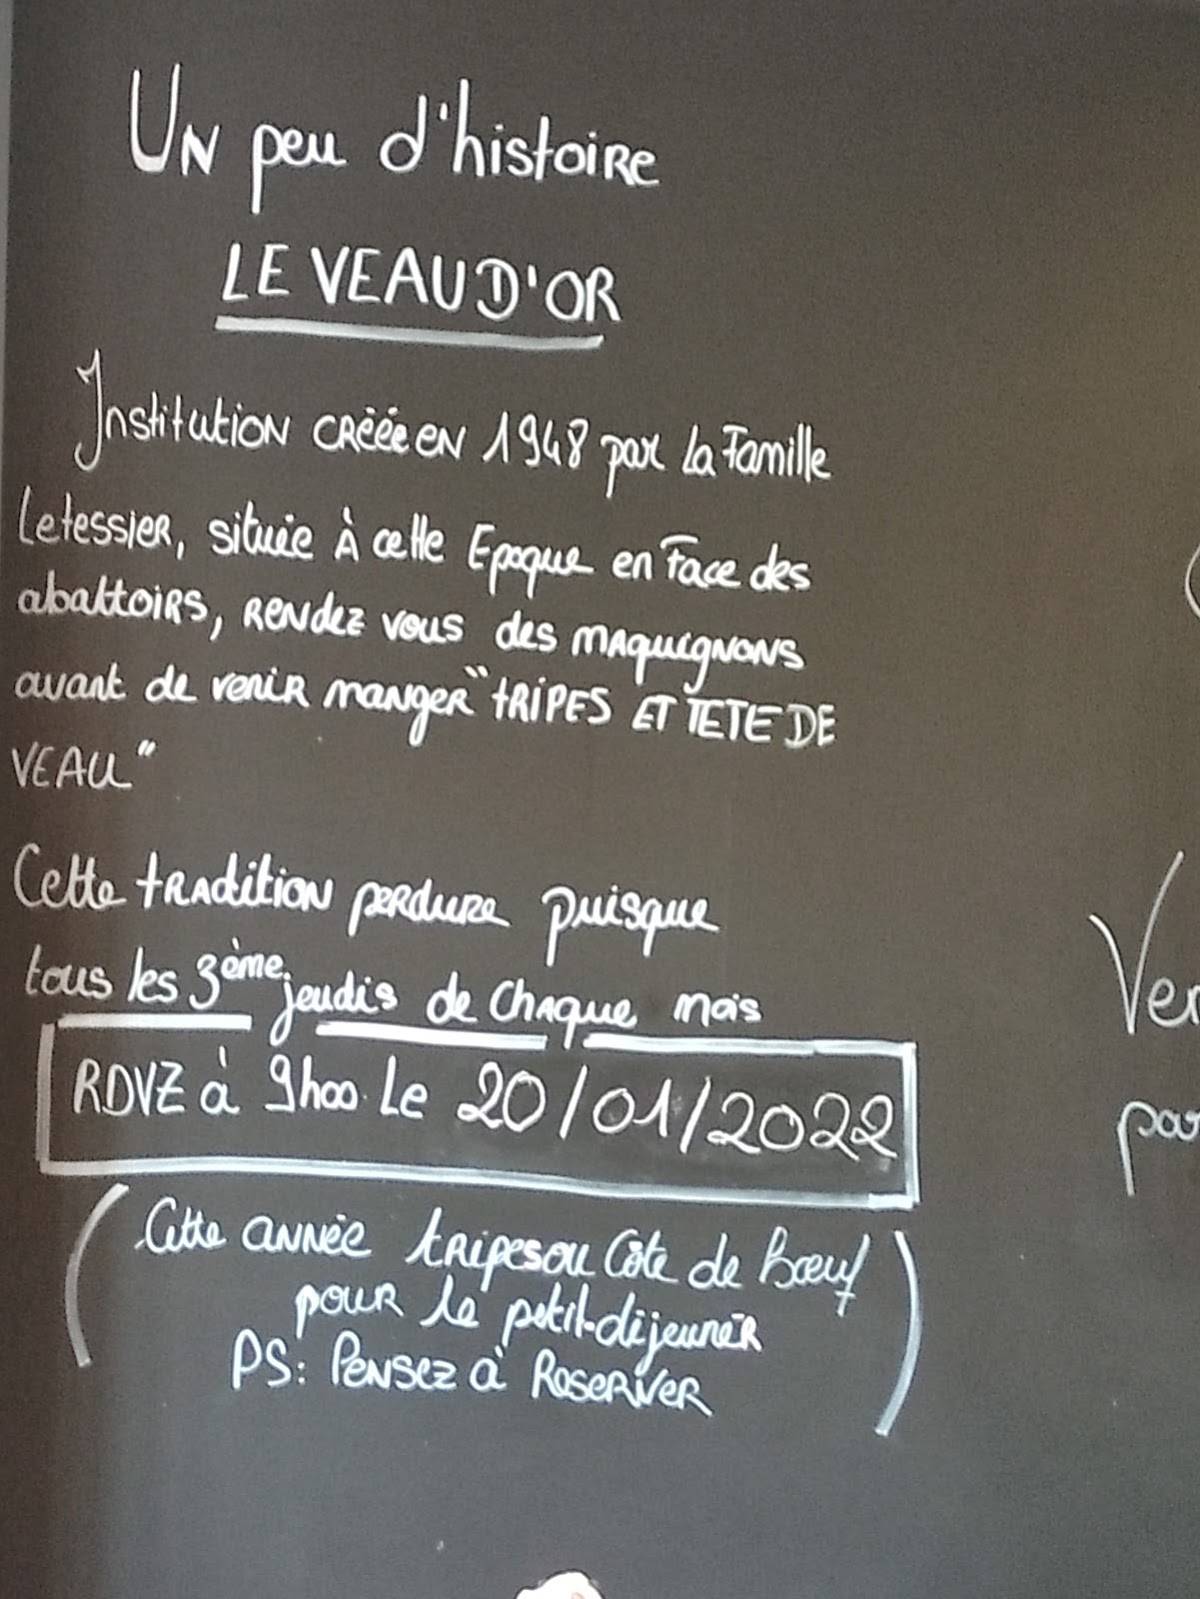 UN peu d'histoire
LE VEAU D'OR
Institution créée en 1948 par la Famille
Letessier, située à cette Epoque en Face des
abattoirs, rendez vous des maquignons
avant de venir manger "tripes ET TETE DE
VEAU"
Cette tradition perdure puisque
tous les 3ème jeudis de chaque mois
RDVZ à 9h00 Le 20/01/2022
(Cette année tripes ou Côte de Bœuf
pour le petit-déjeuner
PS: Pensez à Reserver)
Ver
par